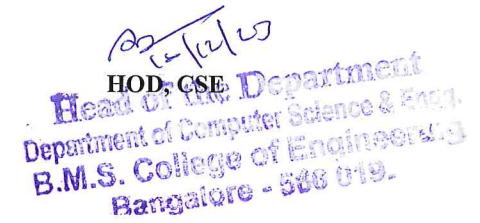 12/12/23
HOD, CSE
Head of the Department
Department of Computer Science & Engg.
B.M.S. College of Engineering
Bangalore - 560 019.